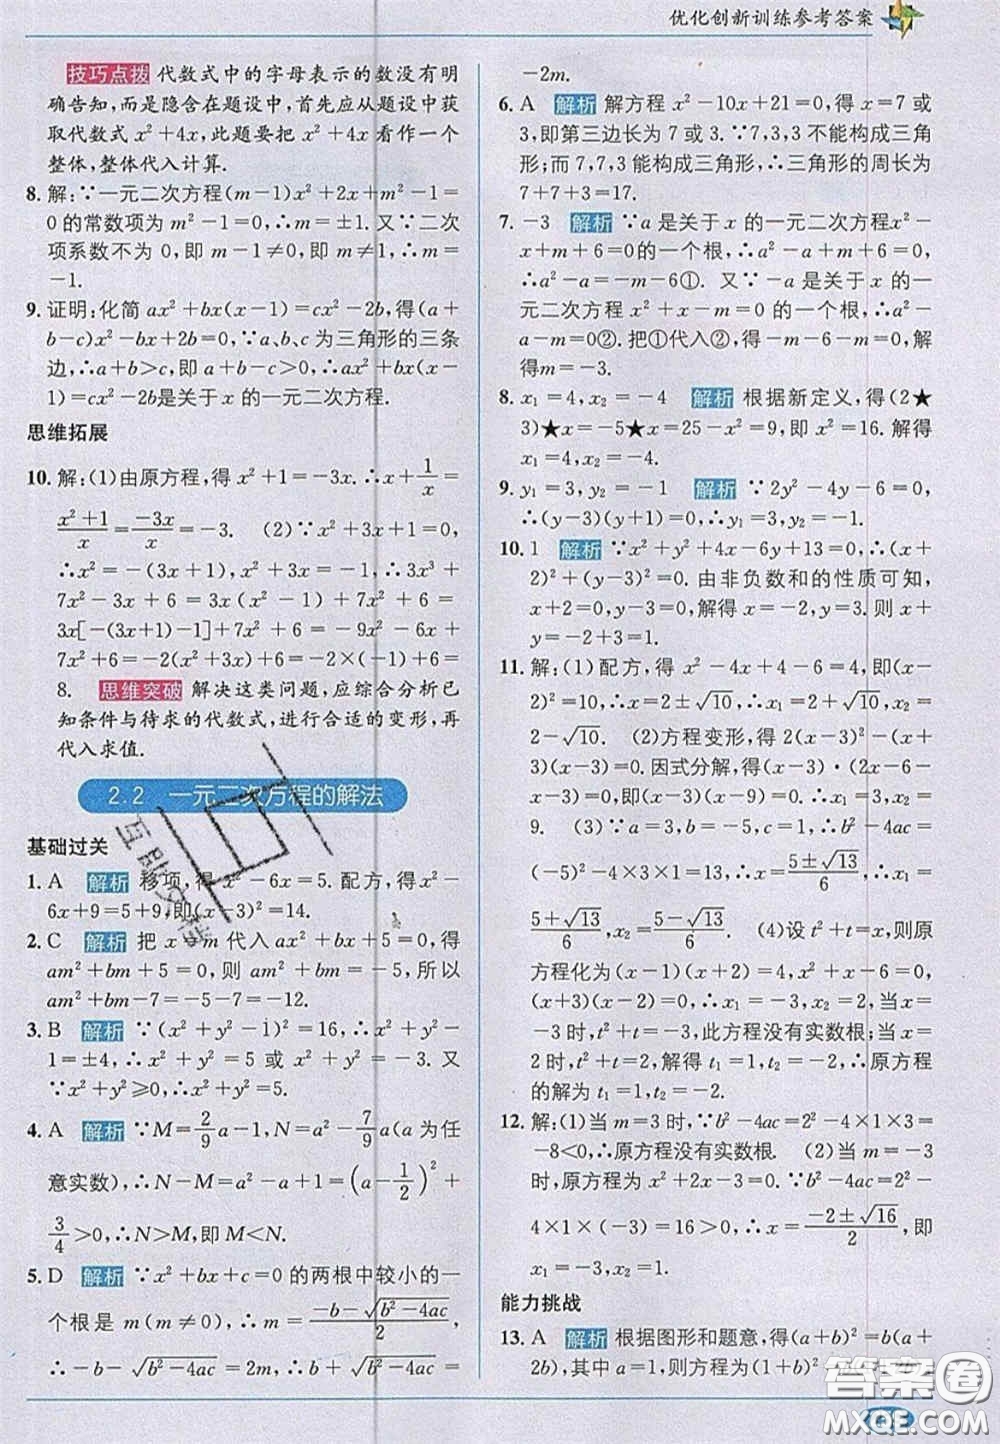 优化创新训练参考答案
技巧点拨 代数式中的字母表示的数没有明
确告知,而是隐含在题设中,首先应从题设中获
取代数式 x²+4x,此题要把 x²+4x 看作一个
整体,整体代入计算.
8. 解:∵一元二次方程(m−1)x²+2x+m²−1=
0的常数项为 m²−1=0,∴m=±1. 又∵二次
项系数不为 0,即 m−1≠0,即 m≠1,∴m=
−1.
9. 证明:化简 ax²+bx(x−1)=cx²−2b,得(a+
b−c)x²−bx+2b=0,∵a、b、c为三角形的三条
边,∴a+b>c,即 a+b−c>0,∴ax²+bx(x−
1)=cx²−2b是关于 x 的一元二次方程.
思维拓展
10. 解:(1)由原方程,得 x²+1=−3x. ∴x+1/x=
(x²+1)/x=−3x/x=−3. (2)∵x²+3x+1=0,
∴x²=−(3x+1),x²+3x=−1,∴3x³+
7x²−3x+6=3x(x²−1)+7x²+6=
3x[−(3x+1)−1]+7x²+6=−9x²−6x
+7x²+6=−2(x²+3x)+6=−2×(−1)+6=
8. 思维突破 解决这类问题,应综合分析已
知条件与待求的代数式,进行合适的变形,再
代入求值.
2.2 一元二次方程的解法
基础过关
1. A 解析 移项,得 x²−6x=5. 配方,得x²−
6x+9=5+9,即(x−3)²=14.
2. C 解析 把 x=m 代入 ax²+bx+5=0,得
am²+bm+5=0,则 am²+bm=−5,所以
am²+bm−7=−5−7=−12.
3. B 解析 ∵(x²+y²−1)²=16,∴x²+y²−
1=±4,∴x²+y²=5 或 x²+y²=−3. 又
∵x²+y²≥0,∴x²+y²=5.
4. A 解析 ∵M=2/9a−1,N=a²−7/9a(a 为任
意实数),∴N−M=a²−a+1=(a−1/2)²+
3/4>0,∴N>M,即 M<N.
5. D 解析 ∵x²+bx+c=0的两根中较小的一
个根是 m(m≠0),∴m=(−b−√(b²−4ac))/2,
∴−b−√(b²−4ac)=2m,∴b+√(b²−4ac)=
−2m.
6. A 解析 解方程 x²−10x+21=0,得 x=7 或
3,即第三边长为 7 或 3. ∵7,3,3 不能构成三角
形;而 7,7,3 能构成三角形,∴三角形的周长为
7+7+3=17.
7. −3 解析 ∵a 是关于 x 的一元二次方程x²−
x+m+6=0的一个根,∴a²−a+m+6=0,
∴a²−a=−m−6①. 又∵−a 是关于 x 的一
元二次方程 x²+x−m=0 的一个根,∴a²−
a−m=0②. 把①代入②,得−m−6−m=0,解
得m=−3.
8. x₁=4,x₂=−4 解析 根据新定义,得(2★
3)★x=−5★x=25−x²=9,即 x²=16. 解得
x₁=4,x₂=−4.
9. y₁=3,y₂=−1 解析 ∵2y²−4y−6=0,
∴(y−3)(y+1)=0,∴y₁=3,y₂=−1.
10. 1 解析 ∵x²+y²+4x−6y+13=0,∴(x+
2)²+(y−3)²=0. 由非负数和的性质可知,
x+2=0,y−3=0,解得 x=−2,y=3. 则 x+
y=−2+3=1.
11. 解:(1)配方,得 x²−4x+4−6=4,即(x−
2)²=10,∴x=2±√10,∴x₁=2+√10,x₂=
2−√10. (2)方程变形,得 2(x−3)²−(x+
3)(x−3)=0. 因式分解,得(x−3)·(2x−
6−x−3)=0,∴x−3=0或x−9=0,∴x₁=3,x₂=
9. (3)∵a=3,b=−5,c=1,∴b²−4ac=
(−5)²−4×3×1=13,∴x=(5±√13)/6,∴x₁=
(5+√13)/6,x₂=(5−√13)/6. (4)设 t²+t=x,则原
方程化为(x−1)(x+2)=4,整理,得
(x+3)(x−2)=0,∴x₁=−3,x₂=2. 当x=
−3时,t²+t=−3,此方程没有实数根;当 x=
2时,t²+t=2,解得 t₁=1,t₂=−2. ∴原方程
的解为 t₁=1,t₂=−2.
12. 解:(1)当 m=3 时,∵b²−4ac=2²−4×1×3=
−8<0,∴原方程没有实数根. (2)当 m=−3
时,原方程为 x²+2x−3=0. ∵b²−4ac=2²−
4×1×(−3)=16>0,∴x=(−2±√16)/2,即
x₁=−3,x₂=1.
能力挑战
13. A 解析 根据图形和题意,得(a+b)²=b(a+
2b),其中 a=1,则方程为(1+b)²
答案圈
MXQE.COM